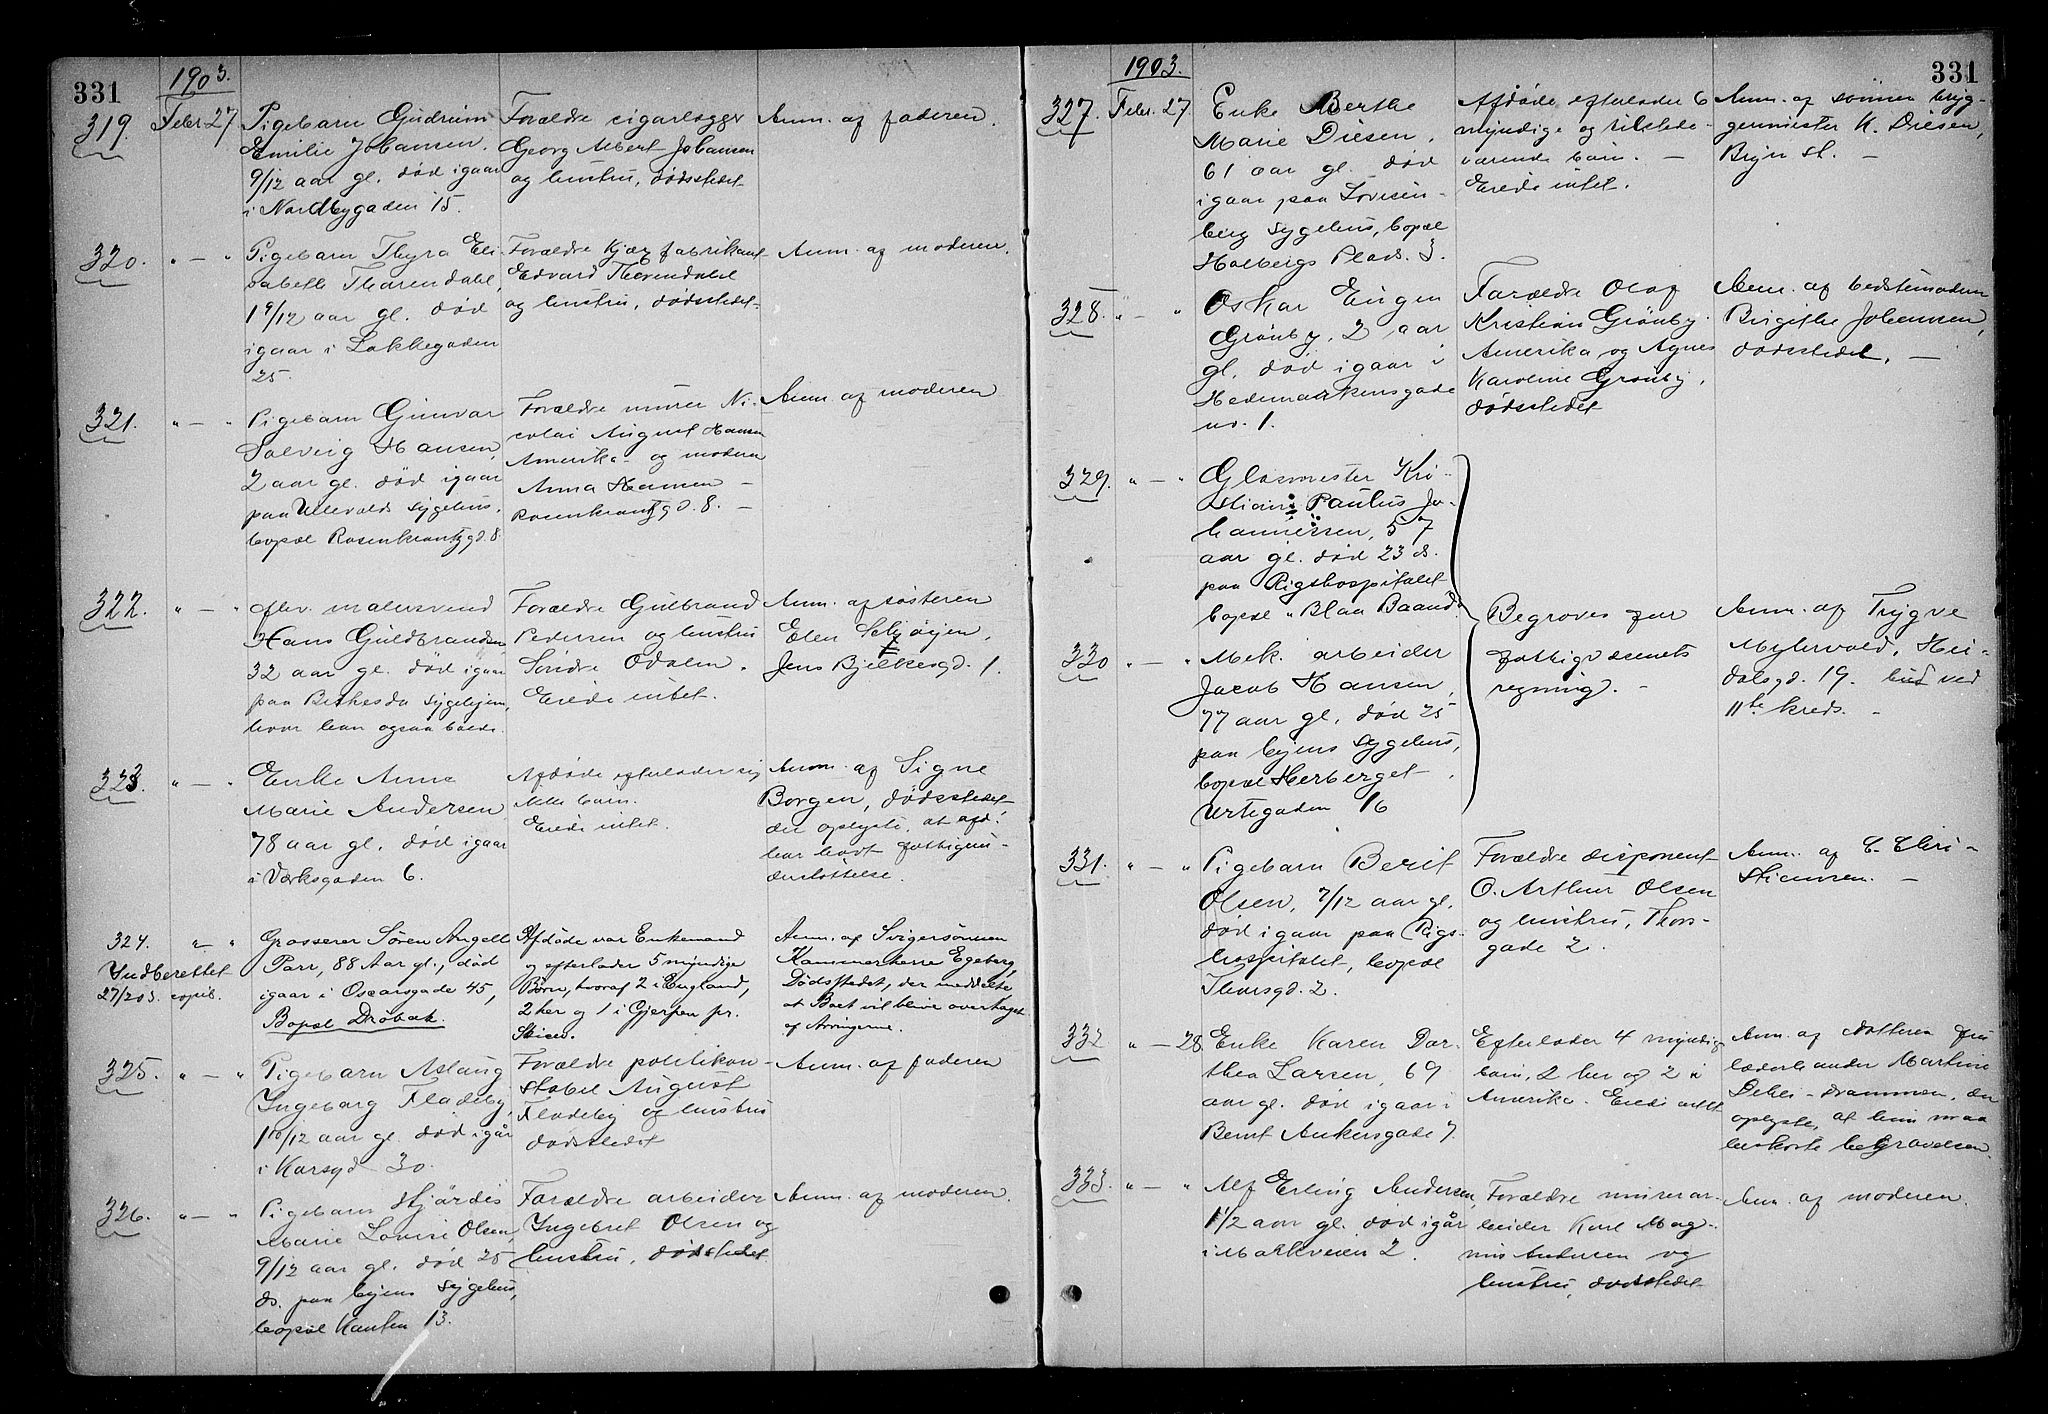 331
1903.
319. Febr. 27
Pigebarn Gudrun
Emilie Johansen.
9/12 aar gl. død igaar
i Nordbygaden 15.
Forældre cigarlægger
Georg Albert Johansen
og hustru, dødsstedet
Anm. af faderen.
320. " — "
Pigebarn Thyra Eli-
sabeth Thorendahl,
1 9/12 aar gl. død
igaar i Lakkegaden
25.
Forældre Kjæx fabrikant
Edvard Thorendahl
og hustru, dødsstedet
Anm. af moderen.
321. " — "
Pigebarn Gunvor
Solveig Hansen,
2 aar gl. død igaar
paa Ullevaals sygehus,
bopæl Rosenkrantzgd. 8
Forældre murer Ni-
colai August Hansen
Amerika - og moderen
Anna Hansen —
Rosenkrantzgd. 8. —
Anm. af moderen
322. " — "
ffhv. malersvend
Hans Guldbrandsen
32 aar gl. død igaar
paa Bethesda sygehjem,
hvor han ogsaa boede.
Forældre Gulbrand
Pedersen og hustru
Søndre Odalen.
Eiede intet.
Anm. af søsteren
Elen Schjøijen,
Jens Bjelkesgd. 1.
323. " — "
Enke Anne
Marie Andersen
78 aar gl. død igaar
i Værksgaden 6.
Afdøde efterlader sig
ikke børn.
Eiede intet.
Anm. af Signe
Borgen, dødsstedet
der oplyste, at afd.
har havt fattigun-
derstøttelse.
324. " — "
Indberettet
27/2 03. copib.
Grosserer Søren Angell
Parr, 88 Aar gl., død
igaar i Oscarsgade 45,
Bopæl Drøbak.
Afdøde var Enkemand
og efterlader 5 myndige
Børn, hvoraf 2 i England,
2 her og 1 i Gjerpen pr.
Skien.
Anm. af Svigersønnen
Kammerherre Egeberg,
Dødsstedet, der meddelte
at Boet vil blive overtaget
af Arvingerne.
325. " — "
Pigebarn Aslaug
Ingeborg Fladeby,
1 10/12 aar gl. død igår
i Korsgd 30.
Forældre politikon-
stabel August
Fladeby og hustru
dødsstedet
Anm. af faderen
326. " — "
Pigebarn Hjördis
Marie Lovise Olsen,
9/12 aar gl. død 25
ds. paa byens sygehus,
bopæl Kanten 13.
Forældre arbeider
Ingebret Olsen og
hustru, dødsstedet
Anm. af moderen.
331
1903.
327. Febr. 27
Enke Berthe
Marie Diesen,
61 aar gl. død
igaar paa Lovisen-
berg sygehus, bopæl
Holbergs Plads. 3.
Afdøde efterlader 6
myndige og tilstede-
værende børn. —
Eiede intet.
Anm. af sønnen bryg-
germester K. Diesen,
Bryn st. —
328. " — "
Oskar Eugen
Grönby, 2 aar
gl. død igaar i
Hedemarkensgade
no. 1.
Forældre Olaf
Kristian Grönby
Amerika og Agnes
Karoline Grönby,
dødsstedet
Anm. af bedstemoderen
Birgithe Johansen,
dødsstedet. —
329. " — "
Glasmester Kri-
stian Paulus Jo-
hannessen, 57
aar gl. død 23 ds.
paa Rigshospitalet
bopæl "Blaa Baand"
330 " — "
Mek. arbeider
Jacob Hansen,
77 aar gl. død 25
paa byens sygehus,
bopæl Herberget
Urtegaden 16
Begraves for
fattigvæsenets
regning. —
Anm. af Trygve
Myhrvold, Hei-
dalsgd. 19. bud ved
11te kreds. —
331. " — "
Pigebarn Berit
Olsen, 7/12 aar gl.
død igaar paa Rigs-
hospitalet, bopæl
Thorsgd. 2.
Forældre disponent
O. Arthur Olsen
og hustru, Thors-
gade 2.
Anm. af C. Chri-
stiansen. —
332 " — 28.
Enke Karen Dor-
thea Larsen, 69
aar gl. død igaar i
Bernt Ankersgade 7.
Efterlader 4 myndige
børn, 2 her og 2 i
Amerika. Eiede intet
Anm. af dotteren fru
læderhandler Martine
Drammen, der
oplyste, at hun maa
bekoste begravelsen.
333. " — "
Alf Erling Andersen,
1 1/2 aar gl. død igår
i Markveien 2.
Forældre murerar-
beider Karl Mag-
nus Andersen og
hustru, dødsstedet
Anm. af moderen.